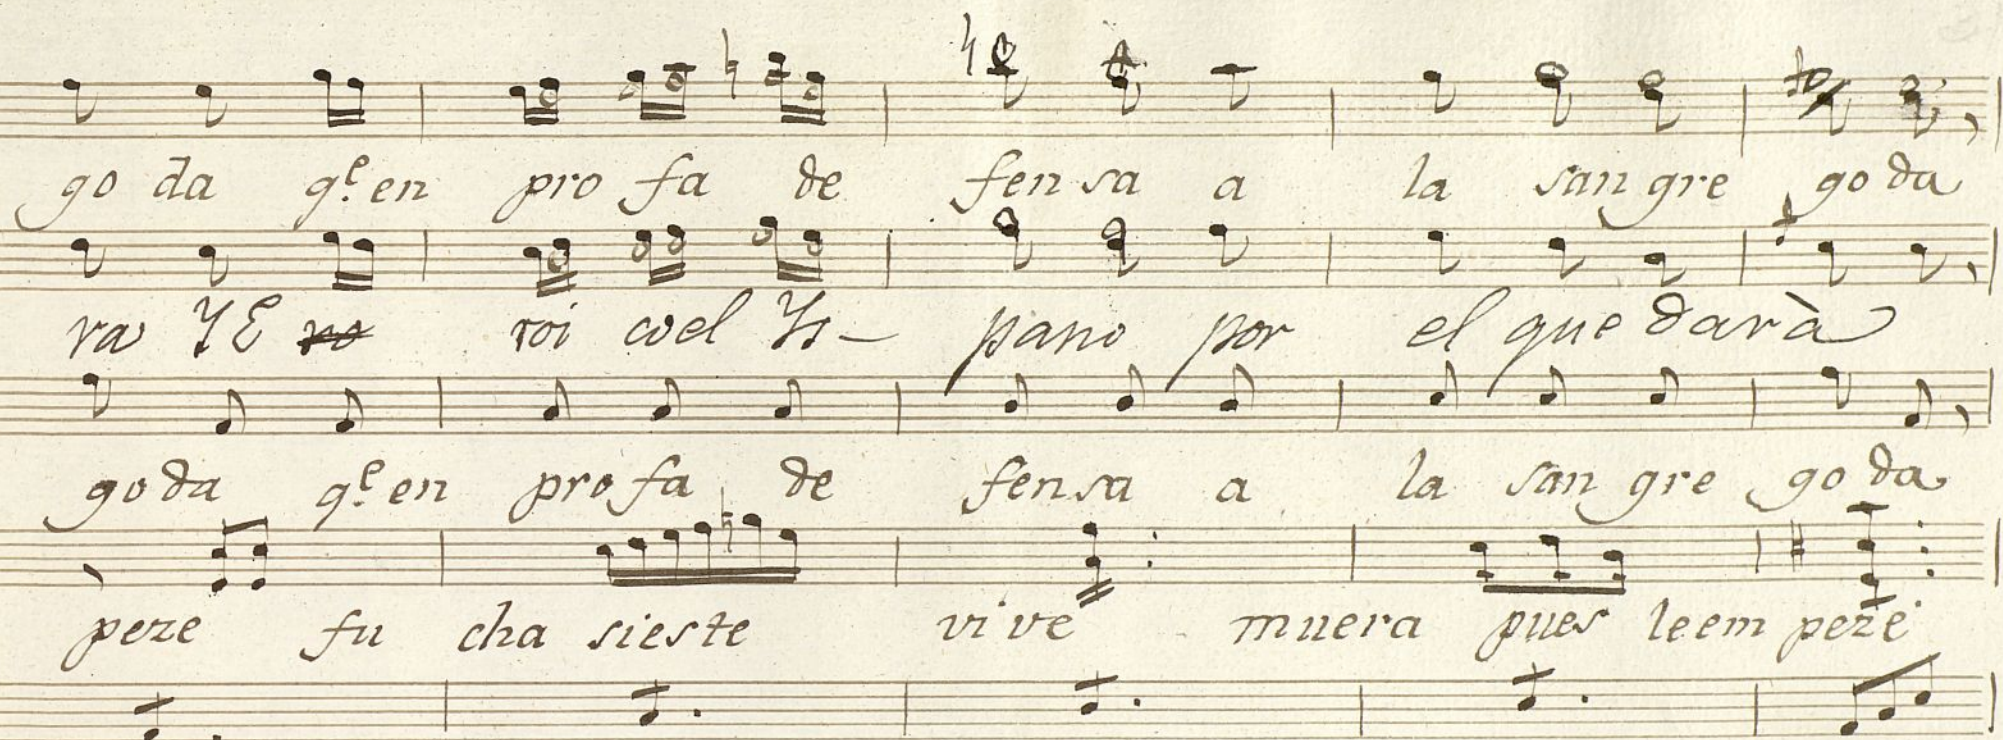 go da q.e en pro fa de fen sa a la san gre go da
ra YE ro roi co el Ys- pano por el que darà
go da q.e en pro fa de fen sa a la san gre go da
peze fu cha si este vi ve muera pues le em peze